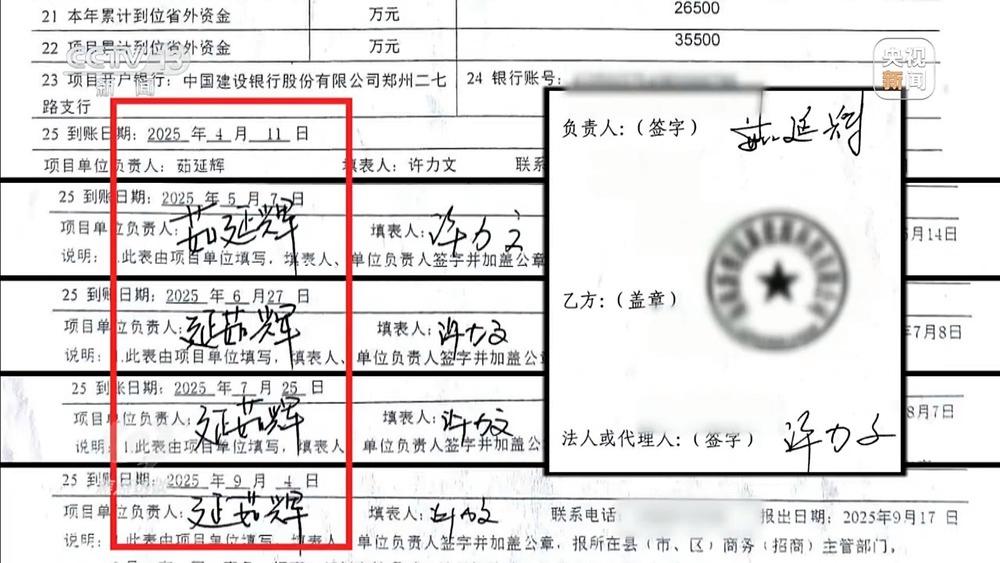 21 本年累计到位省外资金 万元 26500
22 项目累计到位省外资金 万元 35500
CCTV 13
新闻
央视
新闻
23 项目开户银行：中国建设银行股份有限公司郑州二七路支行
24 银行账号：
25 到账日期：2025 年 4 月 11 日
项目单位负责人：茹延辉 填表人：许力文 联系
25 到账日期：2025 年 5 月 7 日
项目单位负责人：茹延辉 填表人：许力文 月14日
说明：1.此表由项目单位填写，填表人、单位负责人签字并加盖公章
25 到账日期：2025 年 6 月 27 日
项目单位负责人：延茹辉 填表人：许力文 年7月8日
说明：1.此表由项目单位填写，填表人、单位负责人签字并加盖公章
25 到账日期：2025 年 7 月 25 日
项目单位负责人：延茹辉 填表人：许力文 8月7日
说明：1.此表由项目单位填写，填表人、单位负责人签字并加盖公章
25 到账日期：2025 年 9 月 4 日
项目单位负责人：延茹辉 填表人： 联系电话： 报出日期：2025年9月17日
说明：1.此表由项目单位填写，填表人、单位负责人签字并加盖公章，报所在县（市、区）商务（招商）主管部门。
负责人：（签字） 茹延辉
乙方：（盖章）
法人或代理人：（签字） 许力